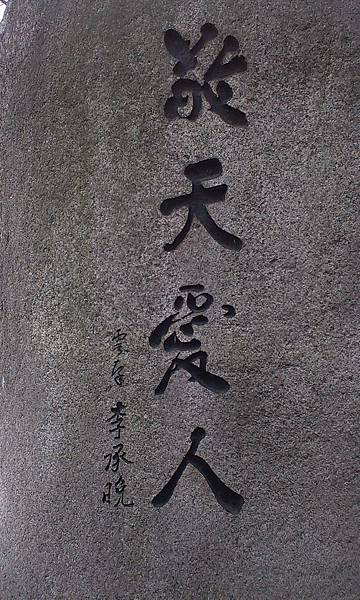 敬天愛人
雩南 李承晩